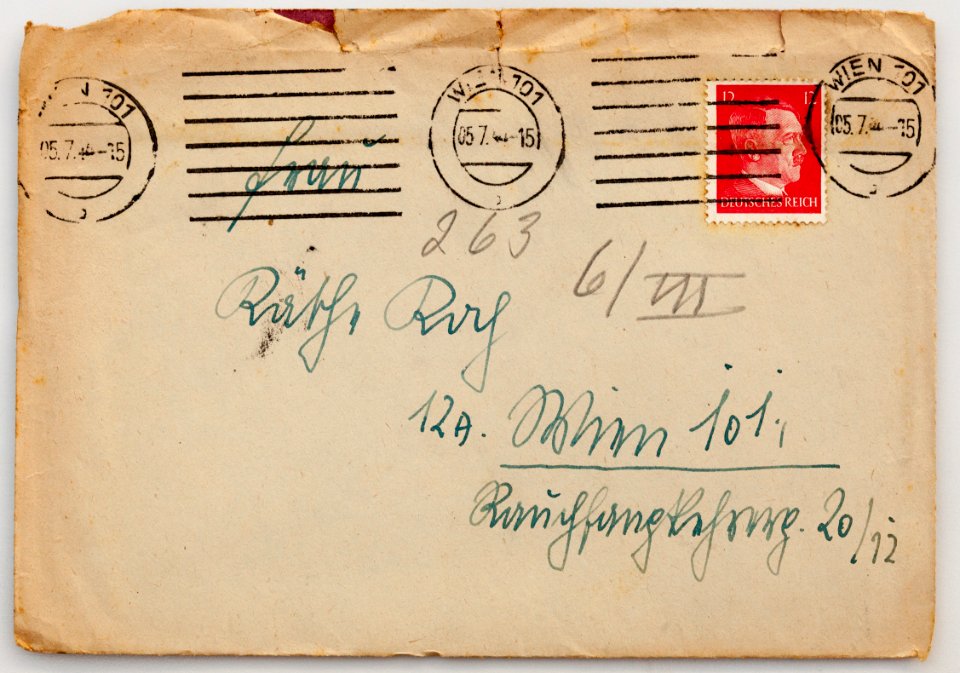 WIEN 101
05.7.44-15
WIEN 101
05.7.44-15
WIEN 101
05.7.44-15
12 12
DEUTSCHES REICH
Frau
263
6/III
Käthe Koch
12A. Wien 101,
Rauchfangkehrerg. 20/12